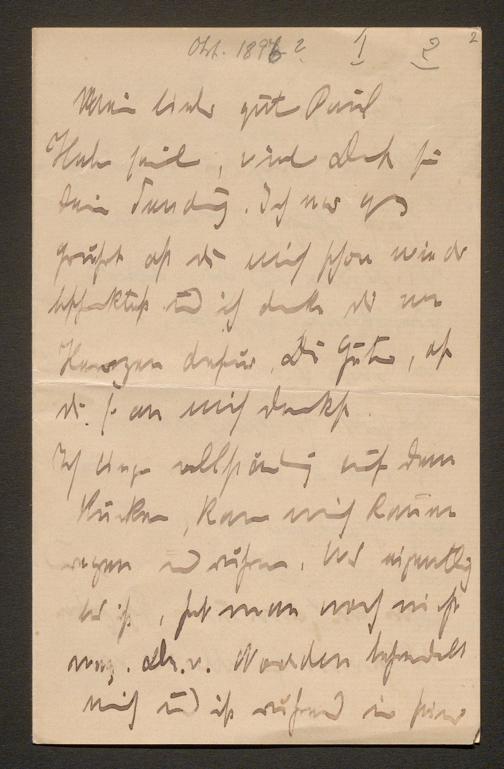 Okt. 1896? 1 2 2
Mein lieber guter Paul
Habe viel, viel Dank für
deine Sendung. Ich war ganz
gerührt daß du mich schon wieder
und ich danke dir von
Herzen dafür. Du Guter, daß
du so an mich denkst.
Ich liege vollständig auf dem
Rücken, kann mich kaum
regen und rühren. Was eigentlich
los ist, hat man noch nicht
weg. Dr. v. Noorden behandelt
mich und ist rührend in seiner